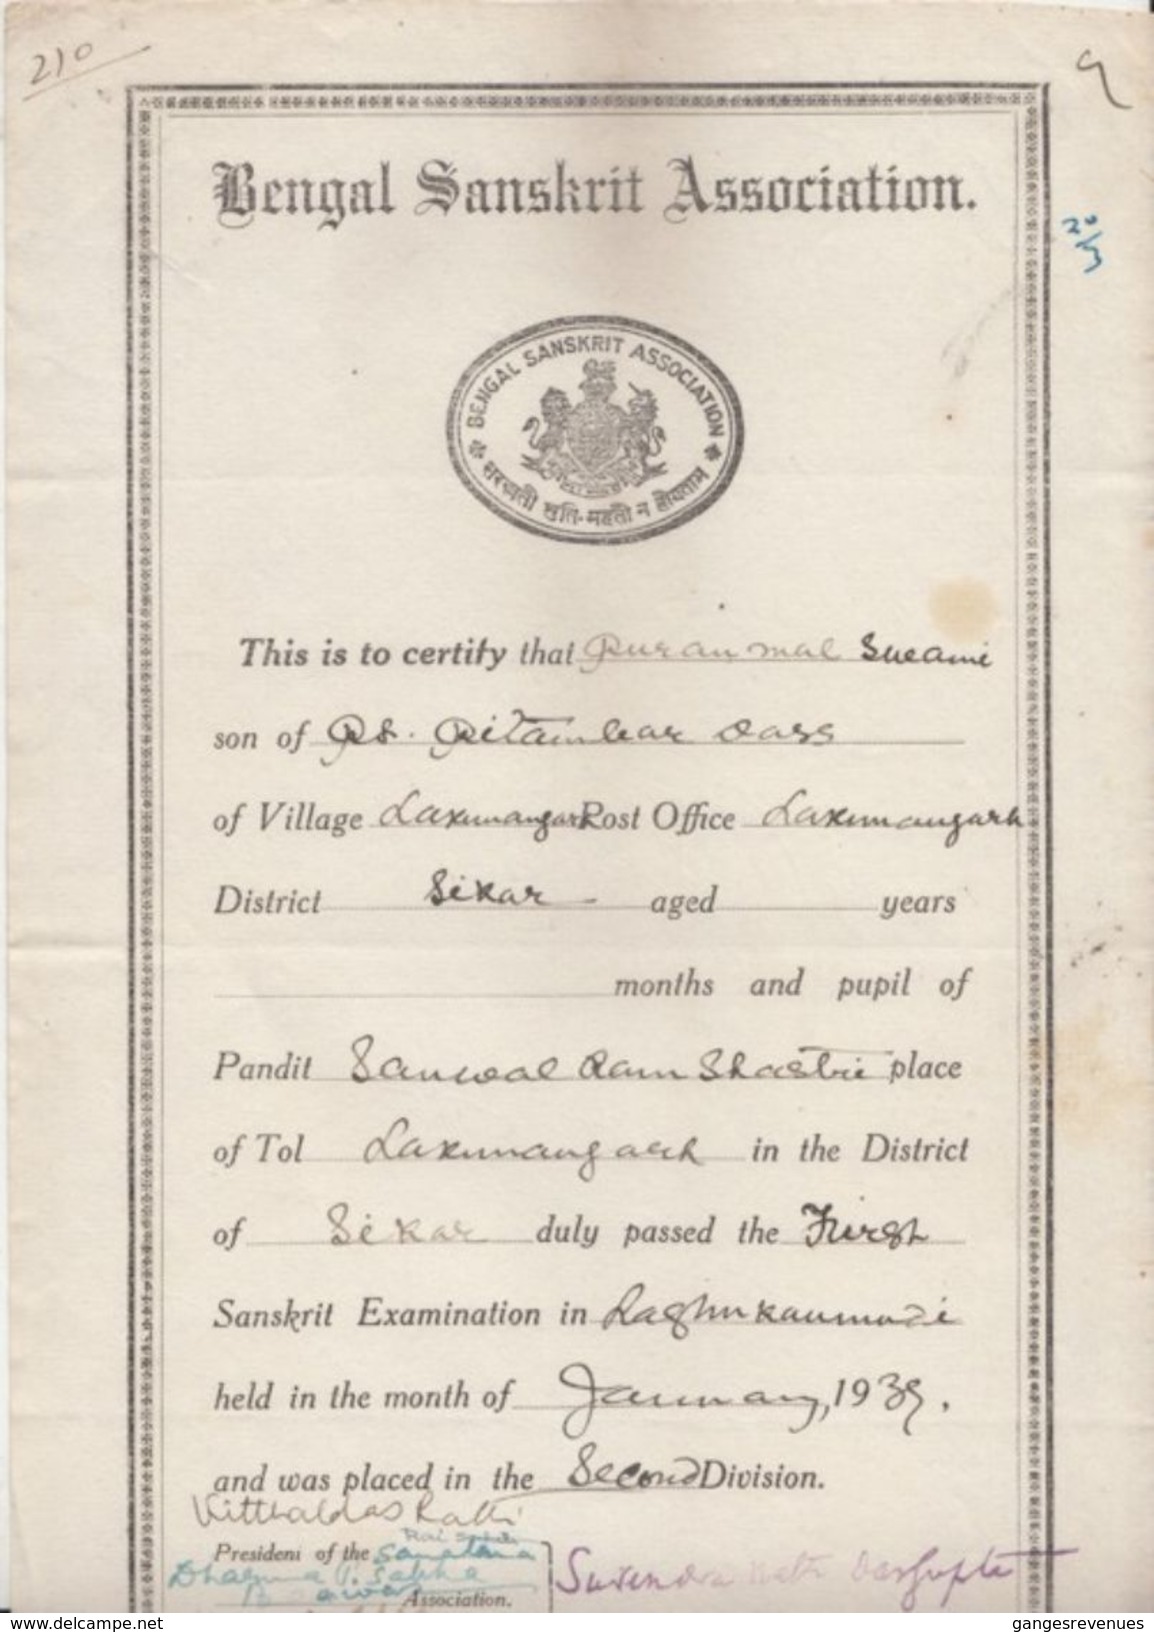 210
Bengal Sanskrit Association.
20/3
BENGAL SANSKRIT ASSOCIATION
सरस्वती श्रुति-महती न हीयताम्
This is to certify that Puranmal Swami
son of Pt. Pitambar Dass
of Village Laxmangarh Post Office Laxmangarh
District Sikar aged years
months and pupil of
Pandit Sanwal Ram Shastri place
of Tol Laxmangarh in the District
of Sikar duly passed the First
Sanskrit Examination in Laghukaumudi
held in the month of January, 1939.
and was placed in the Second Division.
Vitthaldas Rathi
Rai Sahib
President of the Sanatana
Dharma Sabha
Association.
Surendra Nath Dasgupta
www.delcampe.net
gangesrevenues